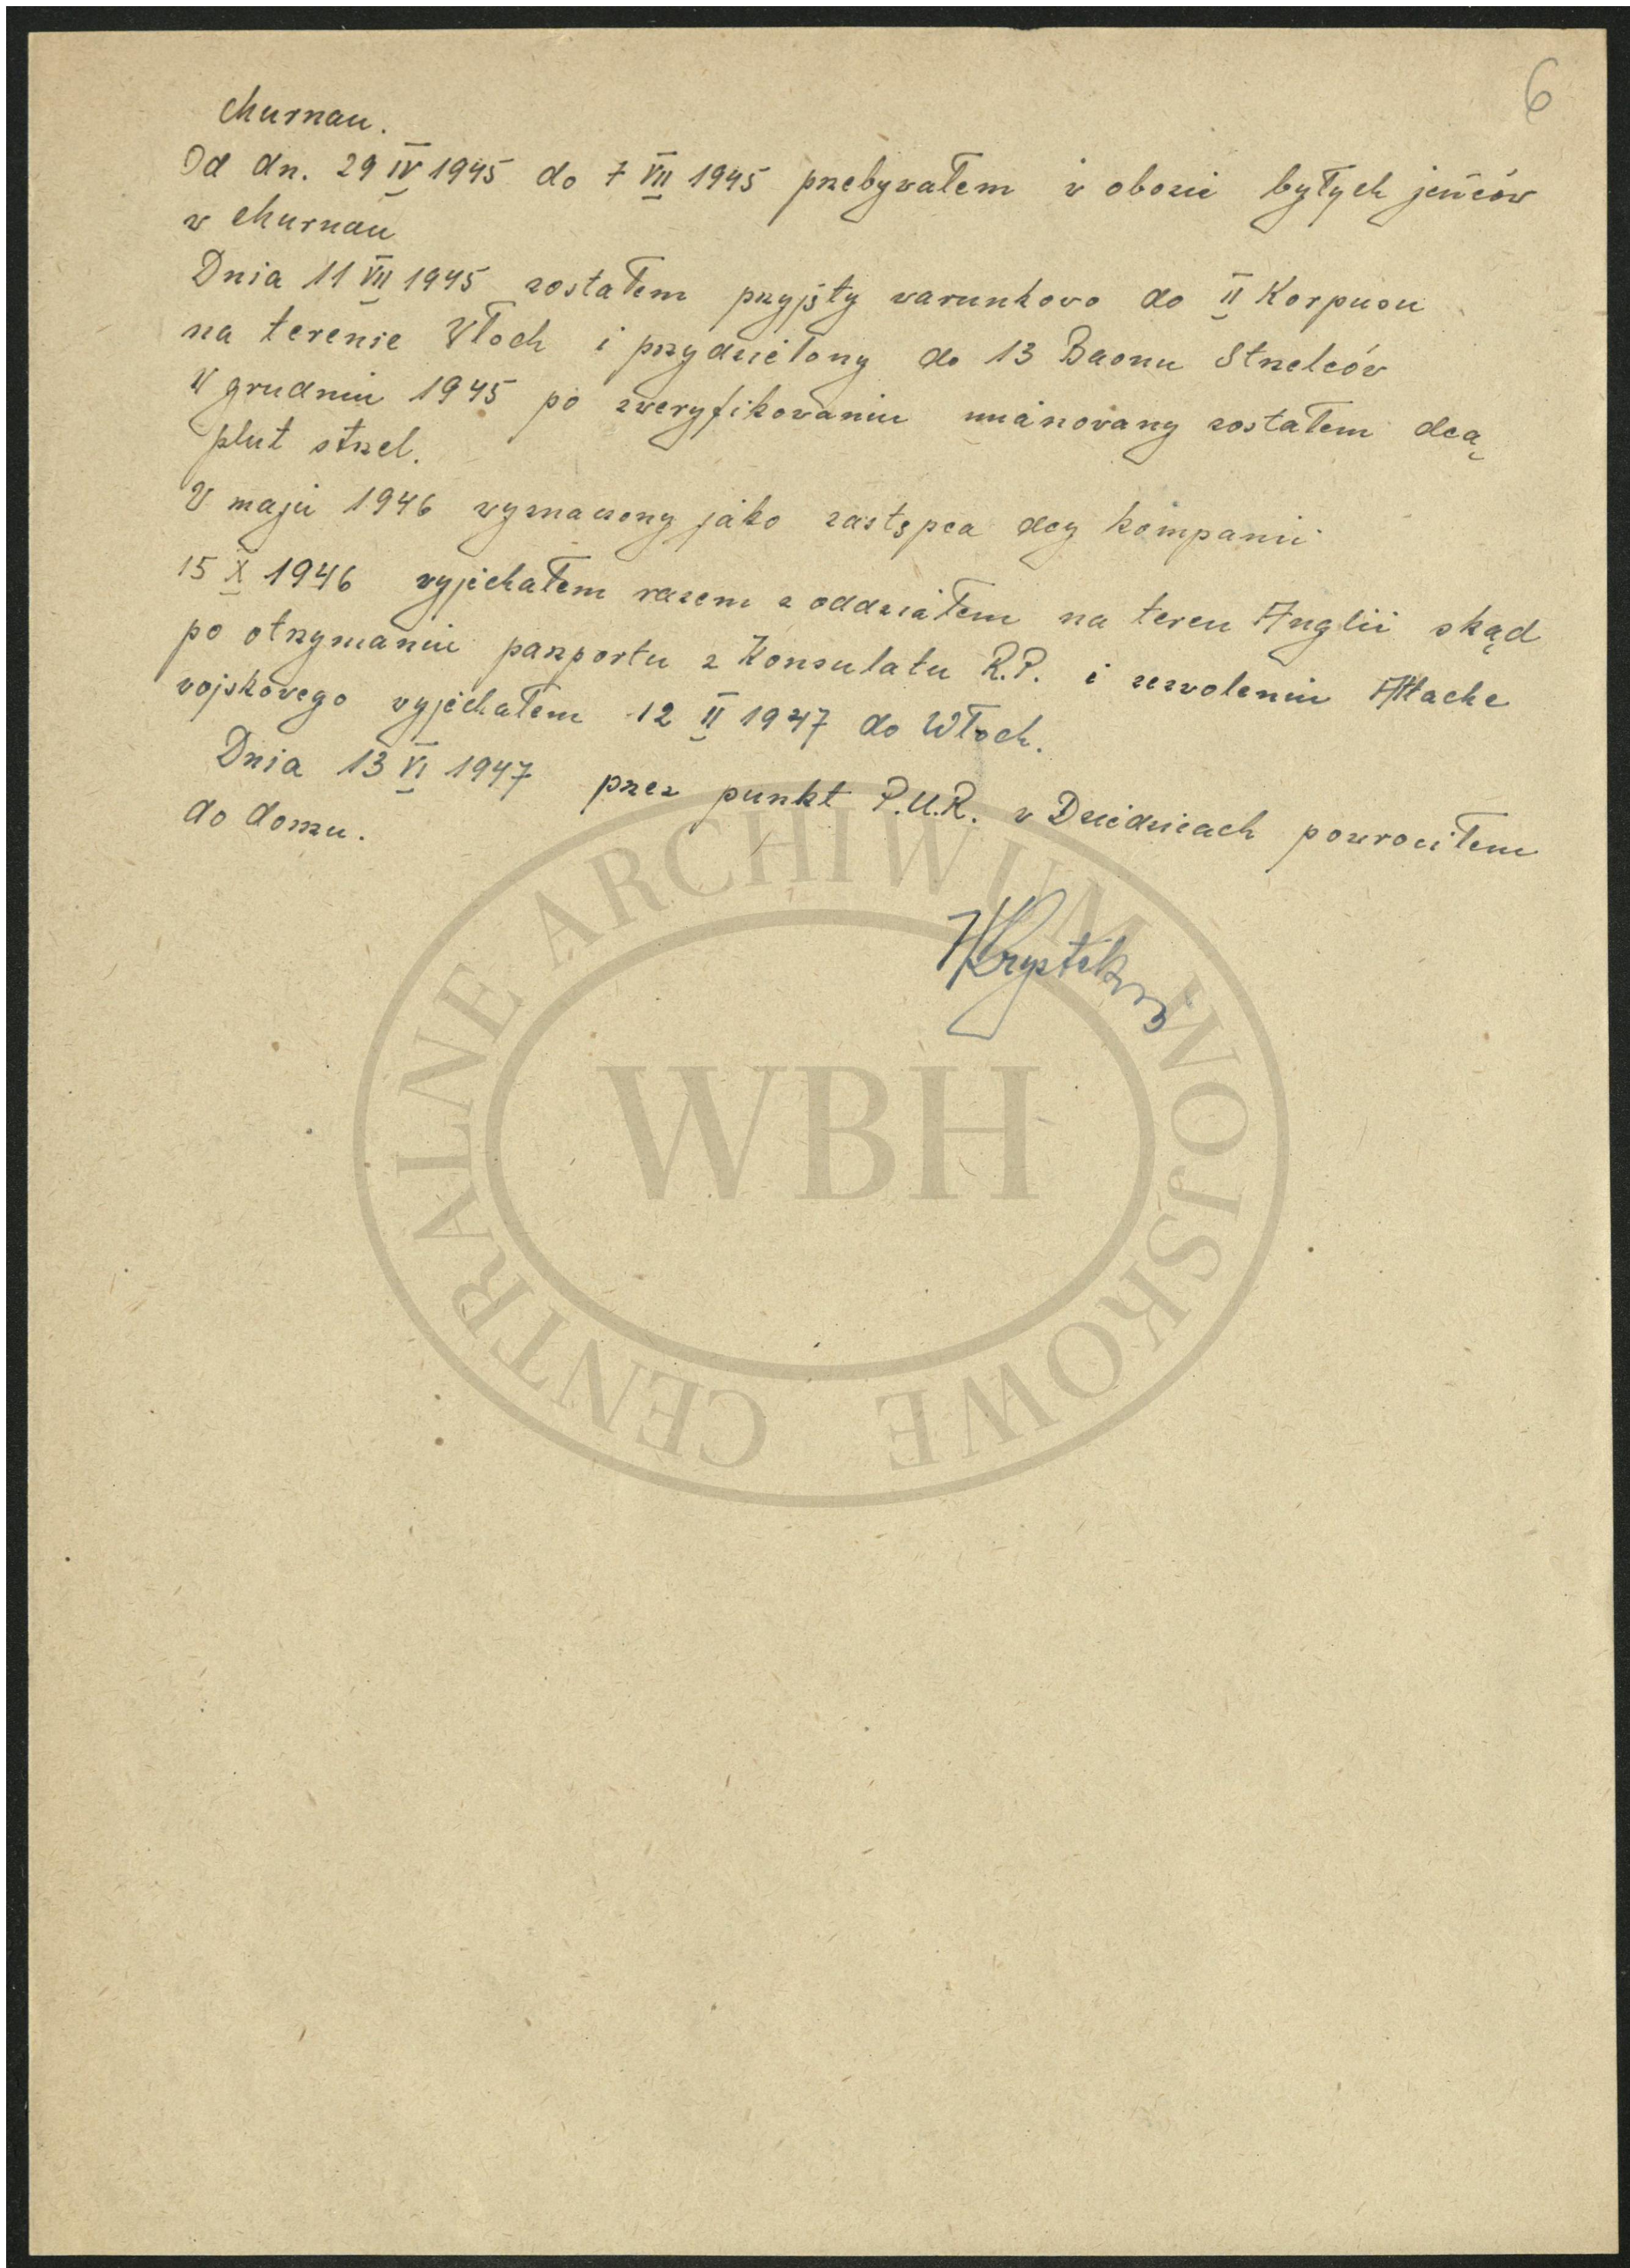 6
Murnau.
Od dn. 29 IV 1945 do 7 VII 1945 przebywałem w obozie byłych jeńców
w Murnau
Dnia 11 VII 1945 zostałem przyjęty warunkowo do II Korpusu
na terenie Włoch i przydzielony do 13 Baonu Strzelców
W grudniu 1945 po zweryfikowaniu mianowany zostałem dcą
plut strzel.
W maju 1946 wyznaczony jako zastępca dcy kompanii
15 X 1946 wyjechałem razem z oddziałem na teren Anglii skąd
po otrzymaniu paszportu z Konsulatu R.P. i zezwoleniu Attache
wojskowego wyjechałem 12 II 1947 do Włoch.
Dnia 13 VI 1947 przez punkt P.U.R. w Dziedzicach powrociłem
do domu.
CENTRALNE ARCHIWUM WOJSKOWE
WBH